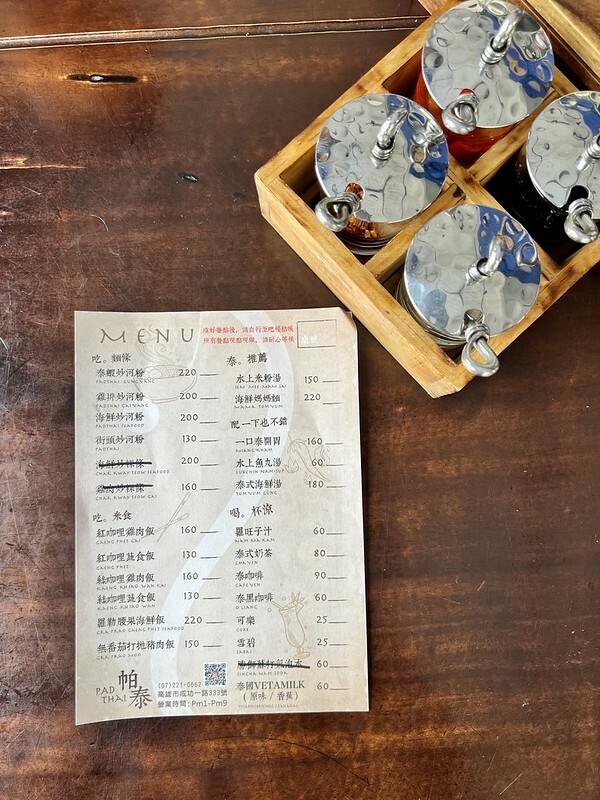 MENU
點好餐點後，請自行至吧檯結帳
所有餐點現點現做，請耐心等候
吃。麵條
泰蝦炒河粉 220
PADTHAI GUNG YANG
雞排炒河粉 200
PADTHAI GAI YANG
海鮮炒河粉 200
PADTHAI SEAFOOD
街頭炒河粉 130
PADTHAI
海鮮炒粿條 200
CHAR KWAY TEOW SEAFOOD
雞肉炒粿條 160
CHAR KWAY TEOW GAI
吃。米食
紅咖哩雞肉飯 160
KAENG PHET GAI
紅咖哩蔬食飯 130
KAENG PHET
綠咖哩雞肉飯 160
KAENG KHIAO WAN KAI
綠咖哩蔬食飯 130
KAENG KHIAO WAN
羅勒腰果海鮮飯 220
GRA PRAO CAENG PHET SEAFOOD
無番茄打拋豬肉飯 150
GRA PRAO MOO
泰。推薦
水上米粉湯 150
海鮮媽媽麵 220
MAMA TOMYUM
配一下也不錯
一口泰開胃 160
MIANG KHAM
水上魚丸湯 60
LUKCHIN NAM-SUP
泰式海鮮湯 180
TOMYUM GUNG
喝。杯涼
羅旺子汁 60
NAM MA KAM
泰式奶茶 80
CHA YEN
泰咖啡 90
CAFE YEN
泰黑咖啡 60
O LIANG
可樂 25
COKE
雪碧 25
60
SINGHA NAM SODA
泰國VETAMILK 60
（原味 / 香蕉）
PAD THAI
帕泰
(07)221-0662
高雄市成功一路333號
營業時間：Pm1-Pm9